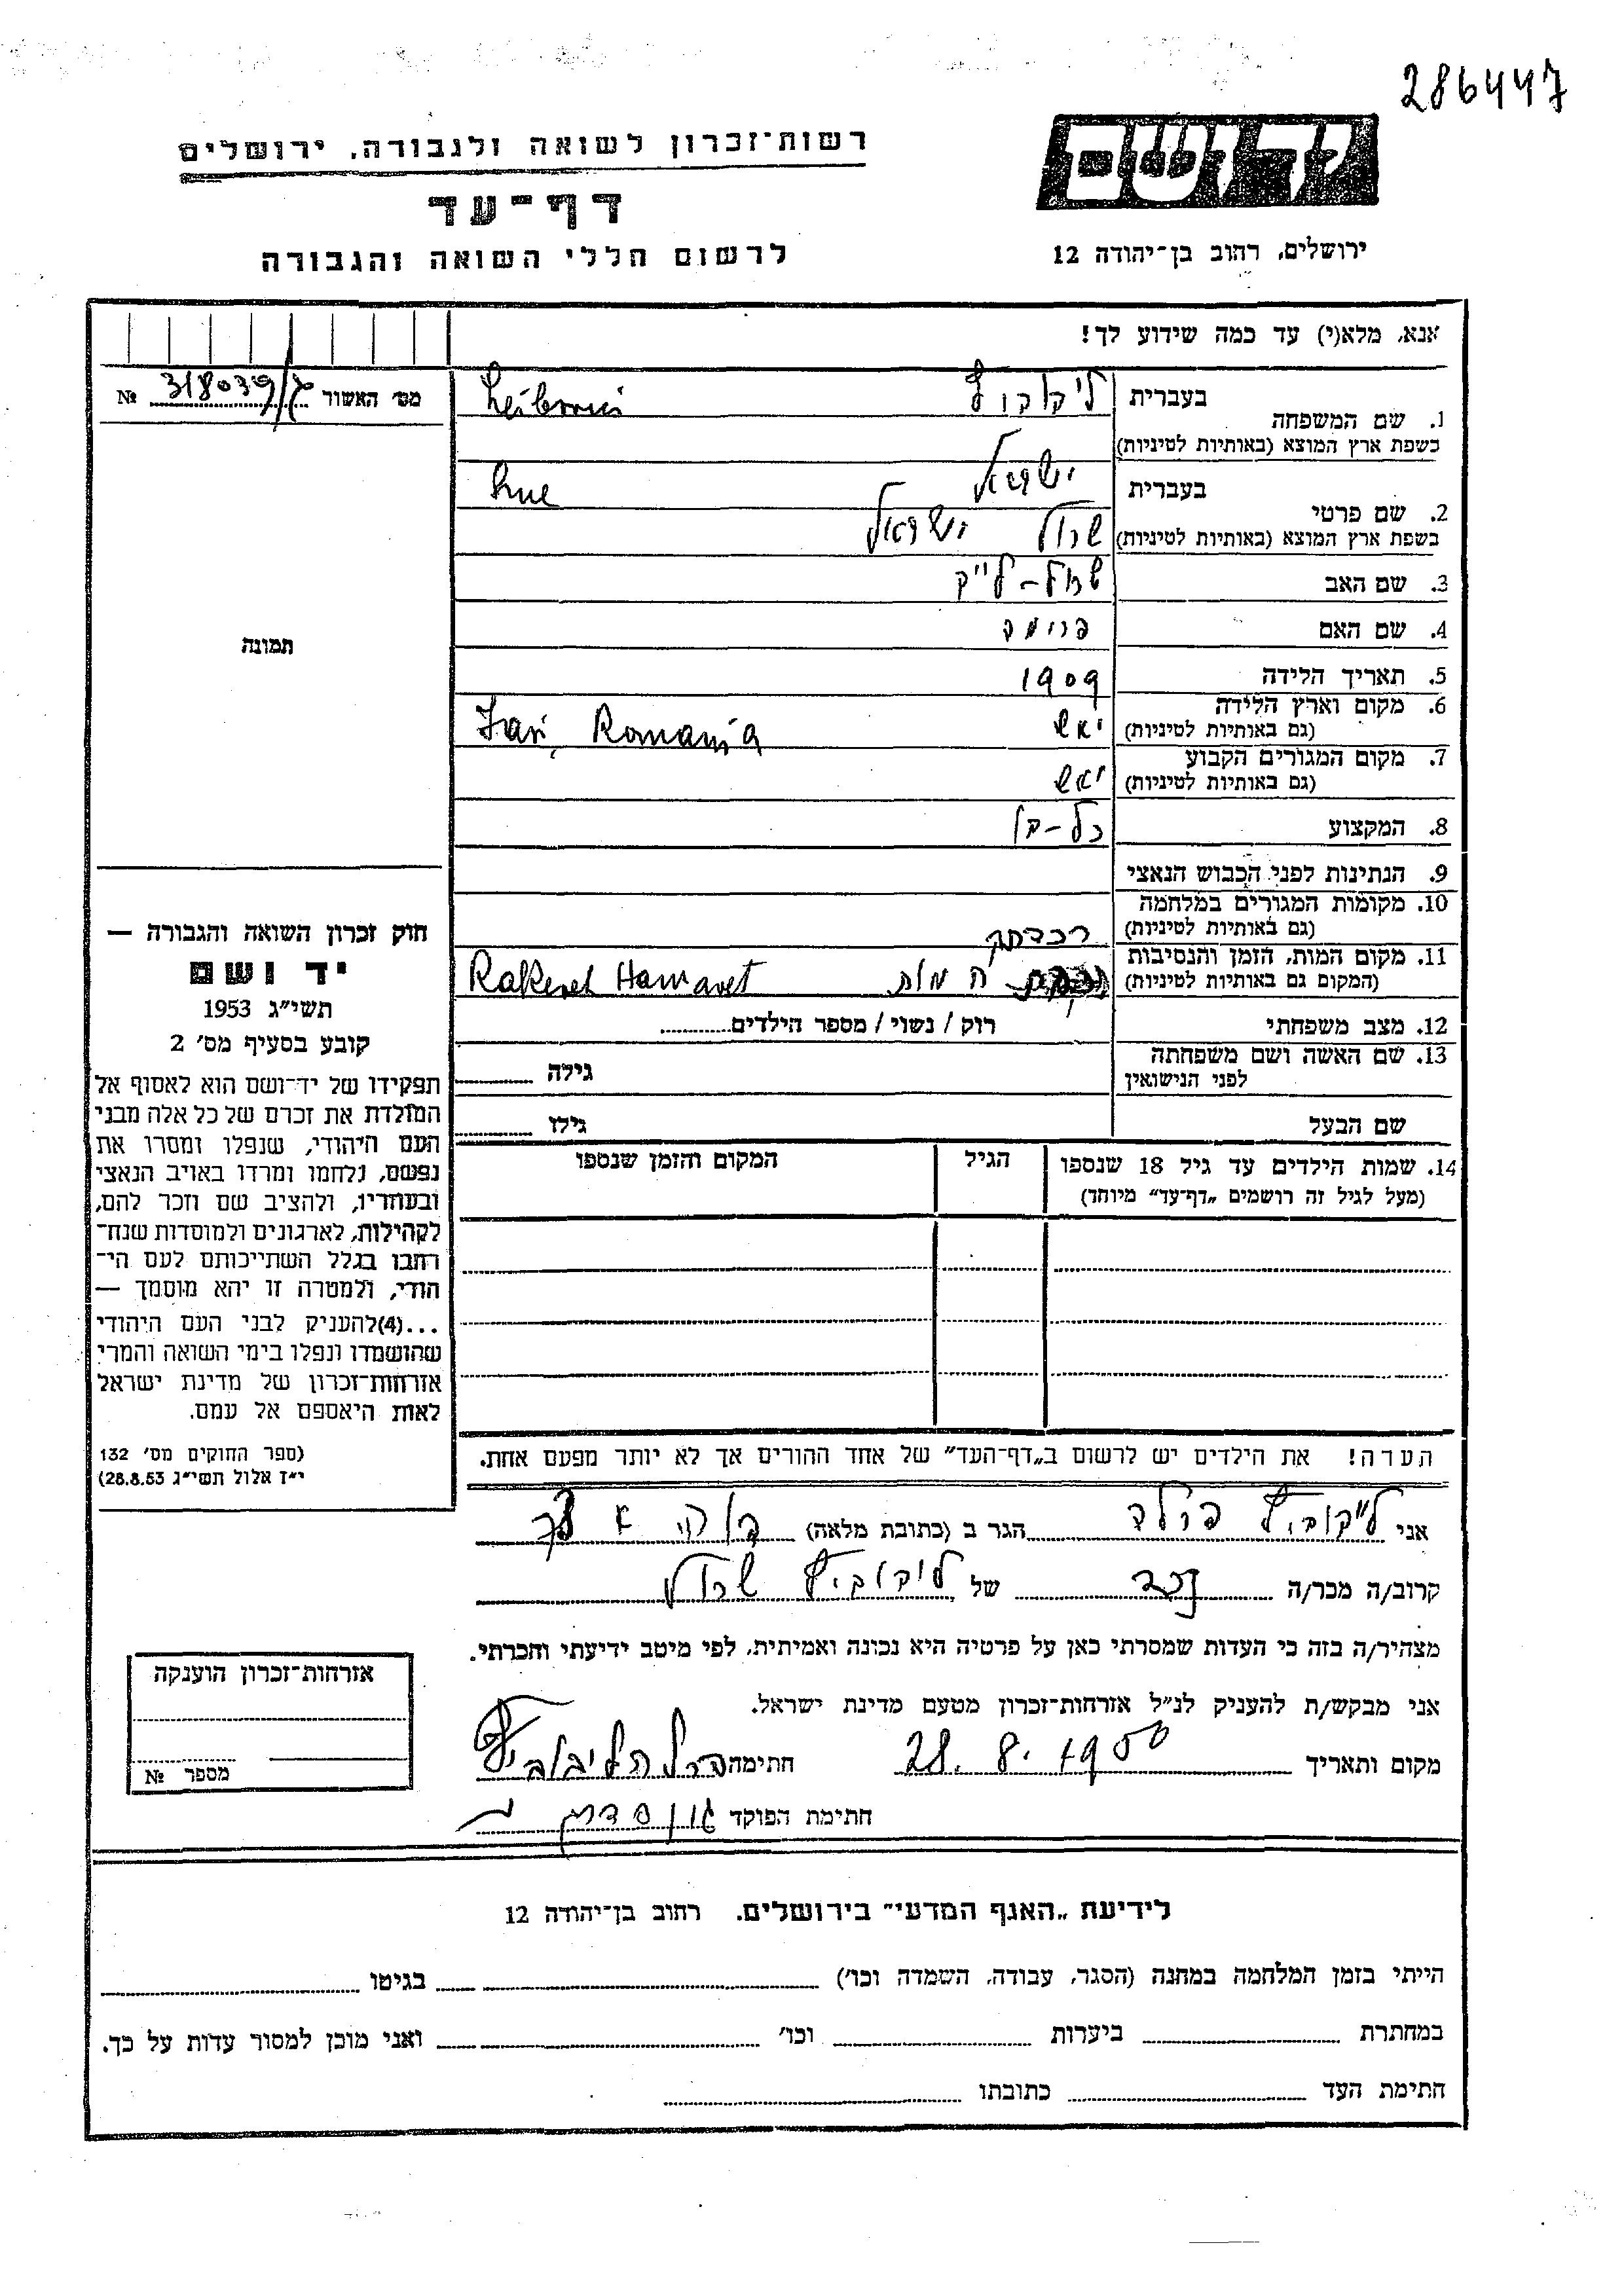 286447
רשות־זכרון לשואה ולגבורה, ירושלים
יד ושם
דף־עד
ירושלים, רחוב בן־יהודה 12
לרשום חללי השואה והגבורה
אנא, מלא(י) עד כמה שידוע לך!
מס׳ האשור № 318039/
1. שם המשפחה
בעברית
בשפת ארץ המוצא (באותיות לטיניות)
2. שם פרטי
בעברית ישראל
בשפת ארץ המוצא (באותיות לטיניות) שרול ישראל
3. שם האב
4. שם האם
5. תאריך הלידה 1909
6. מקום וארץ הלידה
(גם באותיות לטיניות) יאש Iasi, Romania
7. מקום המגורים הקבוע
(גם באותיות לטיניות) יאש
8. המקצוע
9. הנתינות לפני הכבוש הנאצי
10. מקומות המגורים במלחמה
(גם באותיות לטיניות)
11. מקום המות, הזמן והנסיבות
(המקום גם באותיות לטיניות) המות Rakevet Hamavet
12. מצב משפחתי רוק / נשוי / מספר הילדים
13. שם האשה ושם משפחתה
לפני הנישואין
גילה
שם הבעל גילו
14. שמות הילדים עד גיל 18 שנספו הגיל המקום והזמן שנספו
(מעל לגיל זה רושמים „דף־עד״ מיוחד)
תמונה
חוק זכרון השואה והגבורה —
יד ושם
תשי״ג 1953
קובע בסעיף מס׳ 2
תפקידו של יד־ושם הוא לאסוף אל
המולדת את זכרם של כל אלה מבני
העם היהודי, שנפלו ומסרו את
נפשם, נלחמו ומרדו באויב הנאצי
ובעוזריו, ולהציב שם וזכר להם,
לקהילות, לארגונים ולמוסדות שנח־
רבו בגלל השתייכותם לעם הי־
הודי, ולמטרה זו יהא מוסמך —
...(4)להעניק לבני העם היהודי
שהושמדו ונפלו בימי השואה והמרי
אזרחות־זכרון של מדינת ישראל
לאות היאספם אל עמם.
(ספר החוקים מס׳ 132
י״ז אלול תשי״ג 28.8.53)
הערה! את הילדים יש לרשום ב„דף־העד״ של אחד ההורים אך לא יותר מפעם אחת.
אני הגר ב (כתובת מלאה)
קרוב/ה מכר/ה נכד של שרול
מצהיר/ה בזה כי העדות שמסרתי כאן על פרטיה היא נכונה ואמיתית, לפי מיטב ידיעתי והכרתי.
אני מבקש/ת להעניק לנ״ל אזרחות־זכרון מטעם מדינת ישראל.
מקום ותאריך 28. 8. 19 חתימה
חתימת הפוקד
אזרחות־זכרון הוענקה
מספר №
לידיעת „האגף המדעי״ בירושלים. רחוב בן־יהודה 12
הייתי בזמן המלחמה במחנה (הסגר, עבודה, השמדה וכו׳) בגיטו
במחתרת ביערות וכו׳ ואני מוכן למסור עדות על כך.
חתימת העד כתובתו